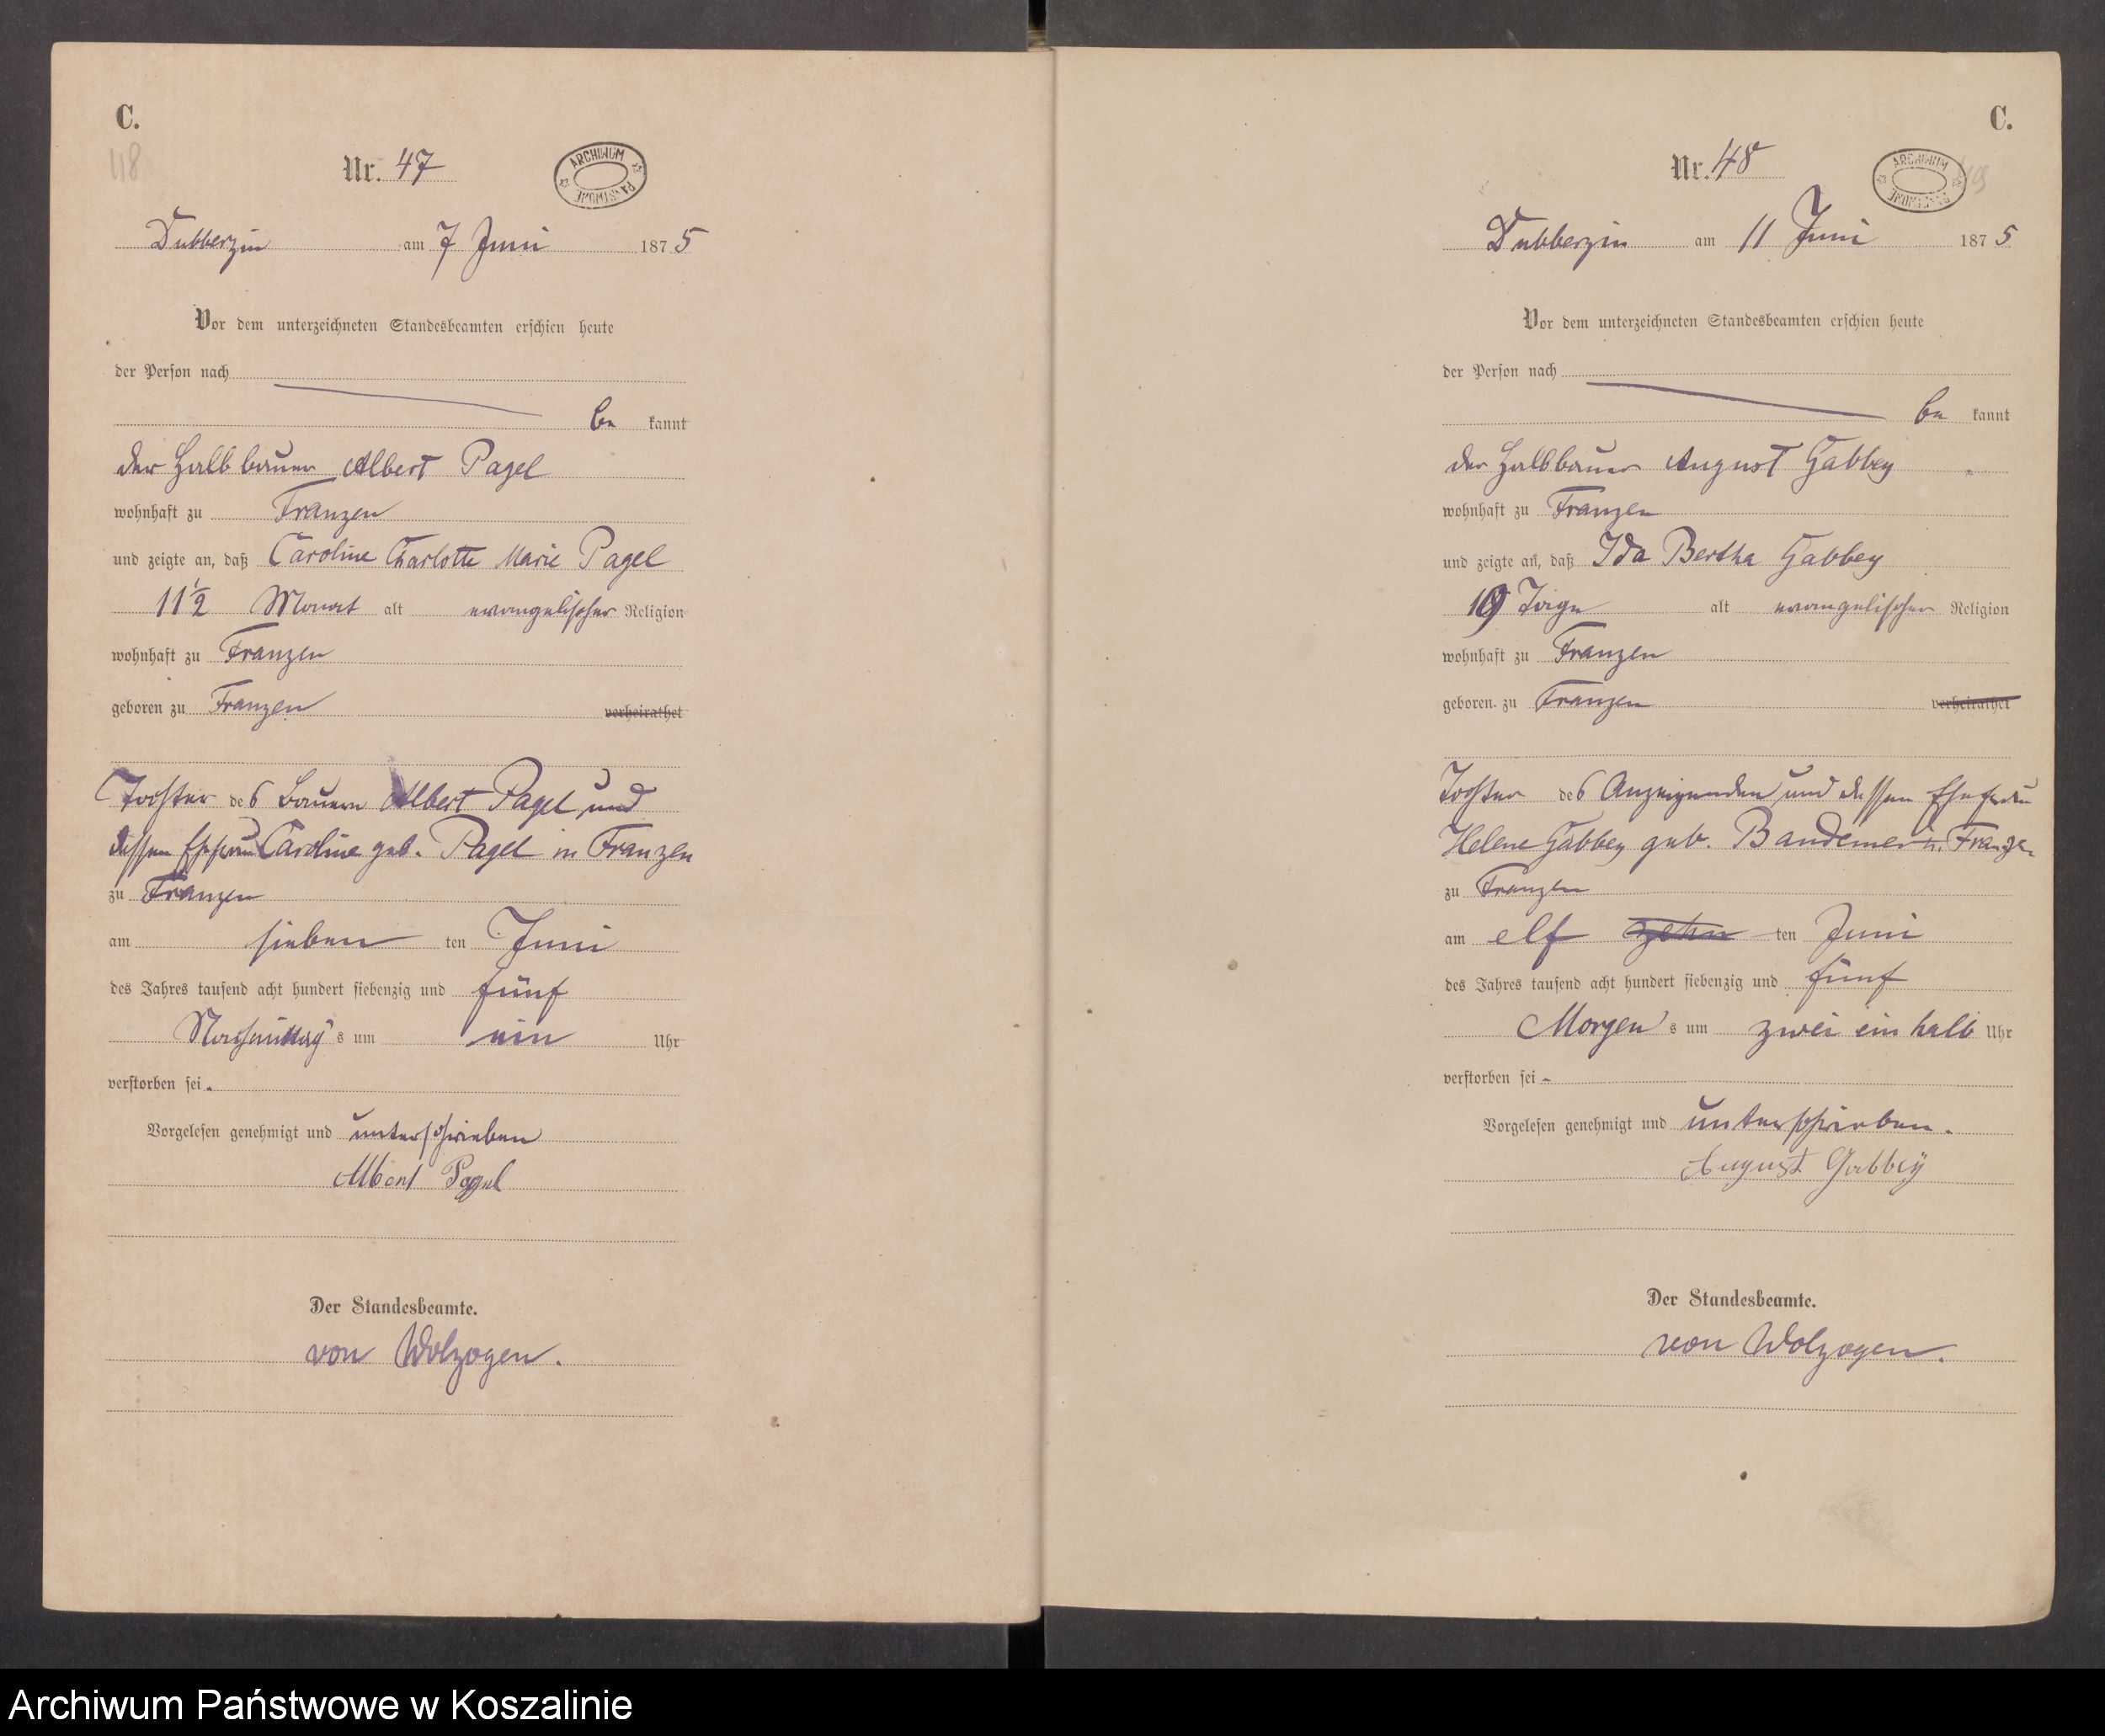 C.
118
Nr. 47
ARCHIWUM PAŃSTWOWE
Dubberzin am 7 Juni 1875
Vor dem unterzeichneten Standesbeamten erschien heute
der Person nach
be kannt
der Halbbauer Albert Pagel
wohnhaft zu Franzen
und zeigte an, daß Caroline Charlotte Marie Pagel
11 1/2 Monat alt evangelischer Religion
wohnhaft zu Franzen
geboren zu Franzen verheirathet
Tochter des Bauern Albert Pagel und
dessen Ehefrau Caroline geb. Pagel in Franzen
zu Franzen
am sieben ten Juni
des Jahres tausend acht hundert siebenzig und fünf
Nachmittag s um ein Uhr
verstorben sei.
Vorgelesen genehmigt und unterschrieben
Albert Pagel
Der Standesbeamte.
von Wolzogen.
C.
Nr. 48
ARCHIWUM PAŃSTWOWE
Dubberzin am 11 Juni 1875
Vor dem unterzeichneten Standesbeamten erschien heute
der Person nach
be kannt
der Halbbauer August Gabbey
wohnhaft zu Franzen
und zeigte an, daß Ida Bertha Gabbey
19 Tage alt evangelischer Religion
wohnhaft zu Franzen
geboren zu Franzen verheirathet
Tochter des Anzeigenden und dessen Ehefrau
Helene Gabbey geb. Bandemer in Franzen
zu Franzen
am elf zehn ten Juni
des Jahres tausend acht hundert siebenzig und fünf
Morgen s um zwei ein halb Uhr
verstorben sei
Vorgelesen genehmigt und unterschrieben.
August Gabbey
Der Standesbeamte.
von Wolzogen.
Archiwum Państwowe w Koszalinie